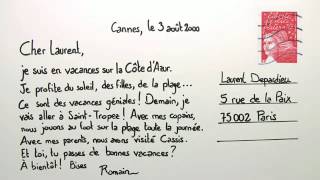 Cannes, le 3 août 2000
Cher Laurent,
je suis en vacances sur la Côte d'Azur.
Je profite du soleil, des filles, de la plage...
Ce sont des vacances géniales ! Demain, je
vais aller à Saint-Tropez ! Avec mes copains,
nous jouons au foot sur la plage toute la journée.
Avec mes parents, nous avons visité Cassis.
Et toi, tu passes de bonnes vacances ?
À bientôt ! Bises
Romain
Laurent Depardieu
5 rue de la Paix
75002 Paris